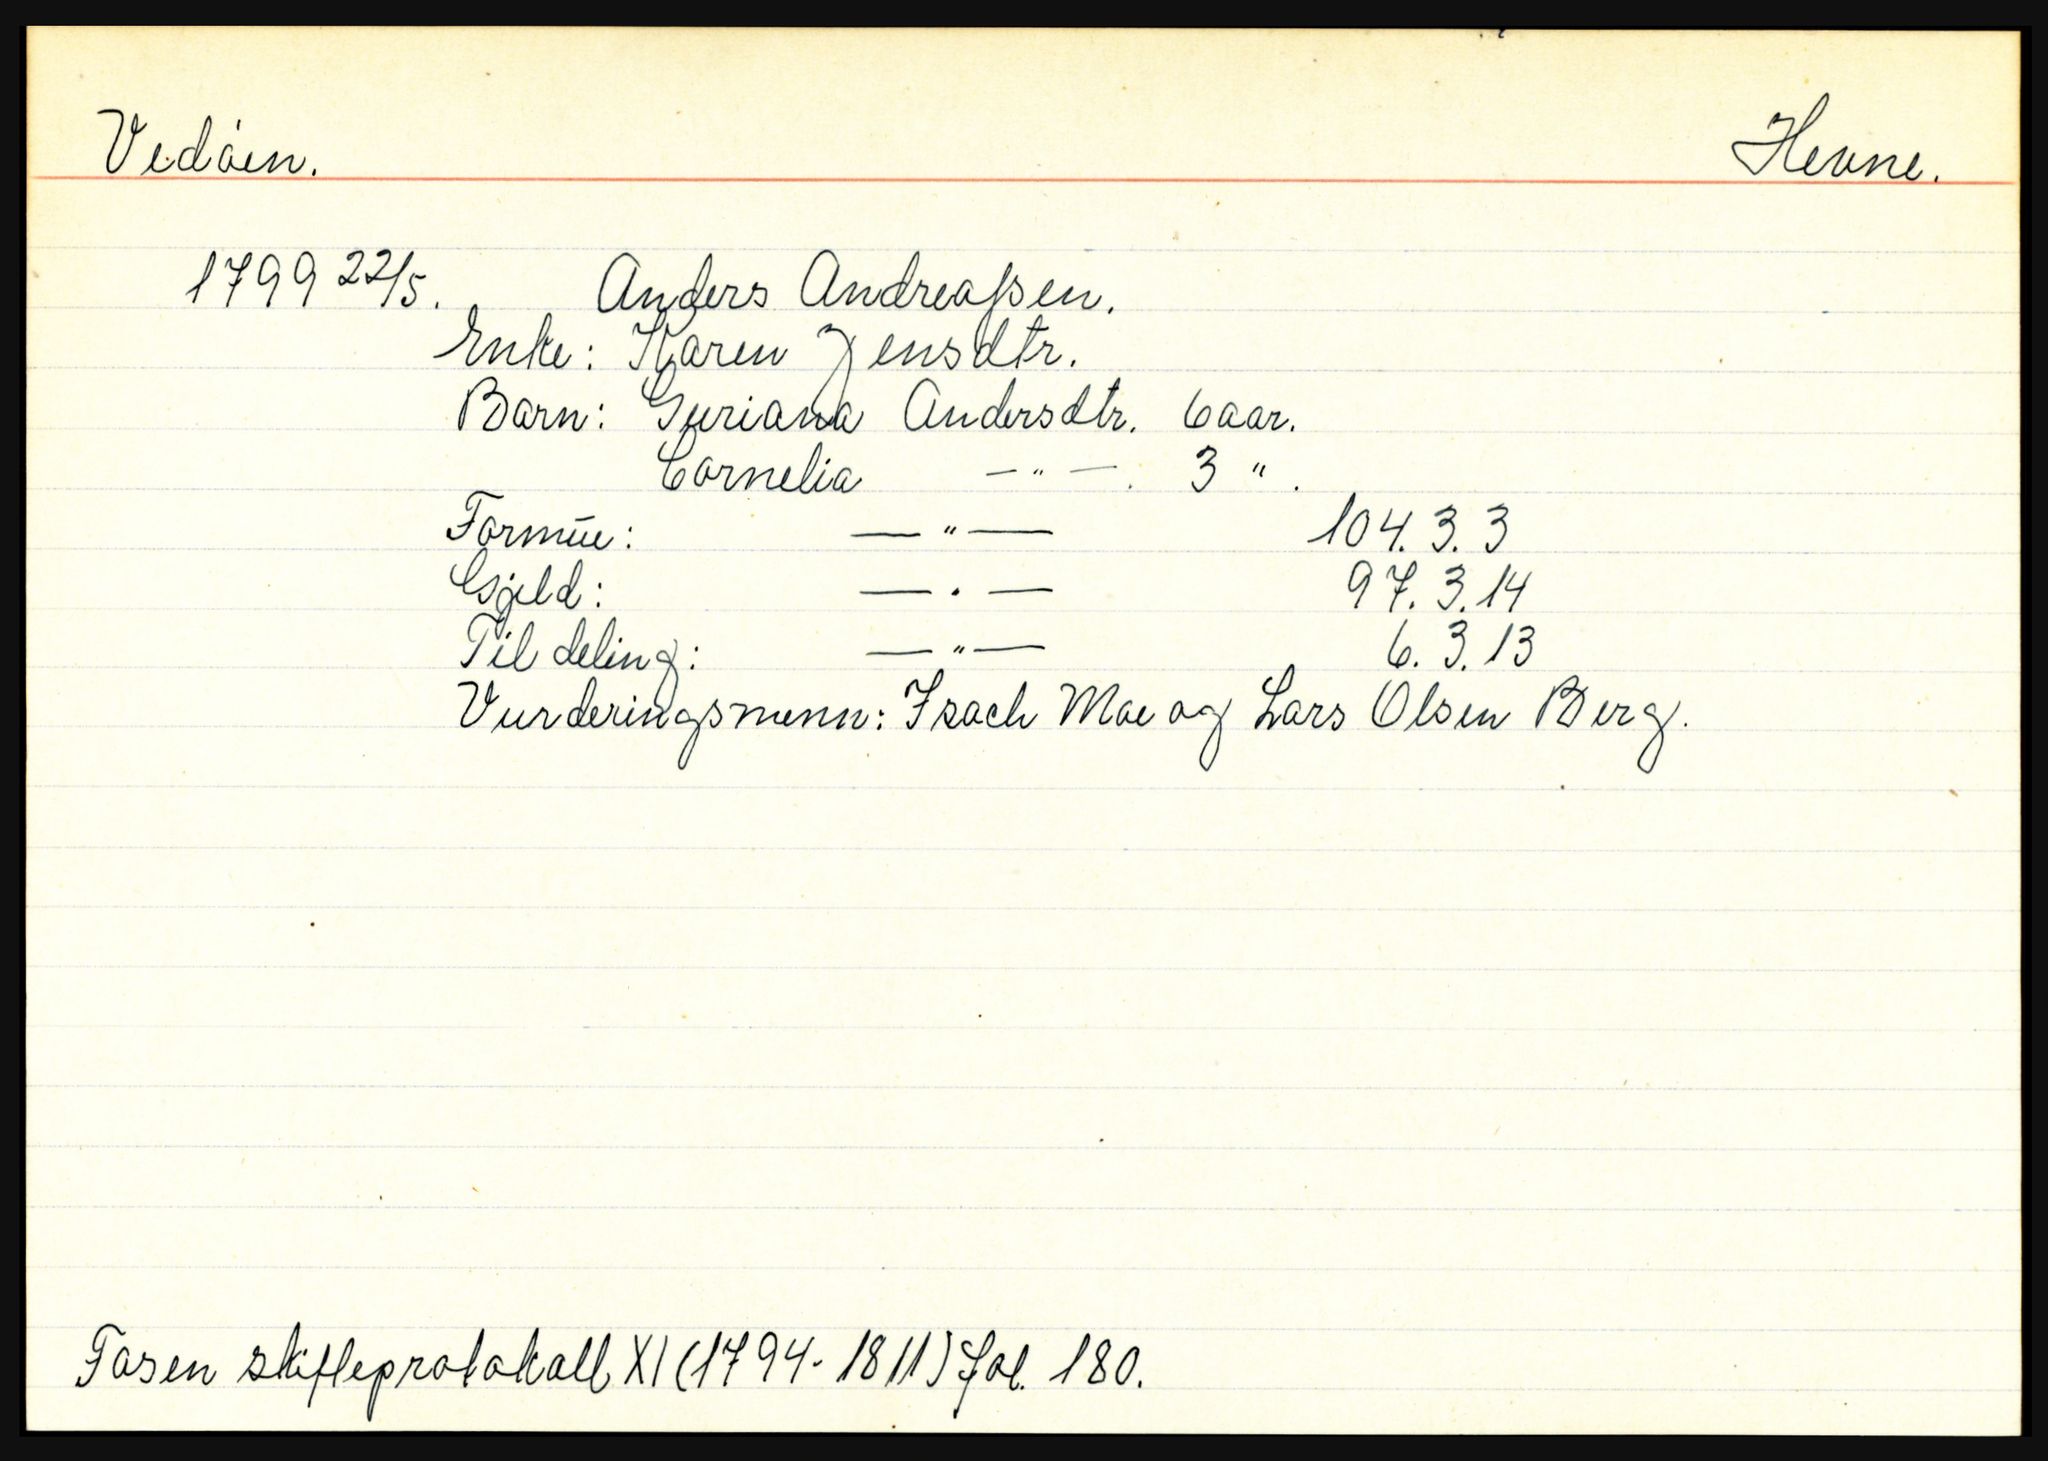 Vedöen. Hevne.
1799 22/5. Anders Andreaſsen.
Enke: Karen Jensdtr.
Barn: Guriana Andersdtr. 6 aar.
Cornelia — " —. 3 ".
Formüe: — " — 104. 3. 3
Gjeld: — . — 97. 3. 14
Til deling: — " — 6. 3. 13
Vurderingsmenn: Isach Moe og Lars Olsen Berg.
Fosen skifteprotokoll XI (1794-1811) fol. 180.